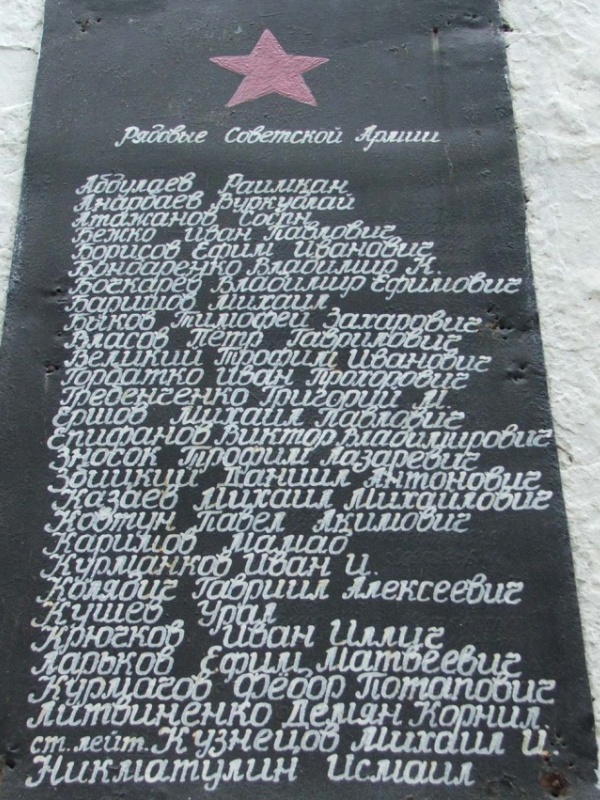 Рядовые Советской Армии
Абдулаев Раимкан
Анарбаев Вуркуалай
Атажанов Софн
Бежко Иван Павлович
Борисов Ефим Иванович
Бондаренко Владимир К.
Бочкарев Владимир Ефимович
Баришов Михаил
Быков Тимофей Захарович
Власов Петр Гаврилович
Великий Трофим Иванович
Горбатко Иван Прохорович
Григорий
Ершов Михаил Павлович
Епифанов Виктор Владимирович
Зносок Трофим Лазаревич
Збицкий Даниил Антонович
Казаев Михаил Михайлович
Ковтун Павел Акимович
Каримов Мамад
Курманков Иван И.
Колябич Гавриил Алексеевич
Кушев Урал
Крючков Иван Иллич
Ларьков Ефим Матвеевич
Курмачов Фёдор Потапович
Литвиненко Демян Корнил.
ст. лейт. Кузнецов Михаил И.
Никматулин Исмаил